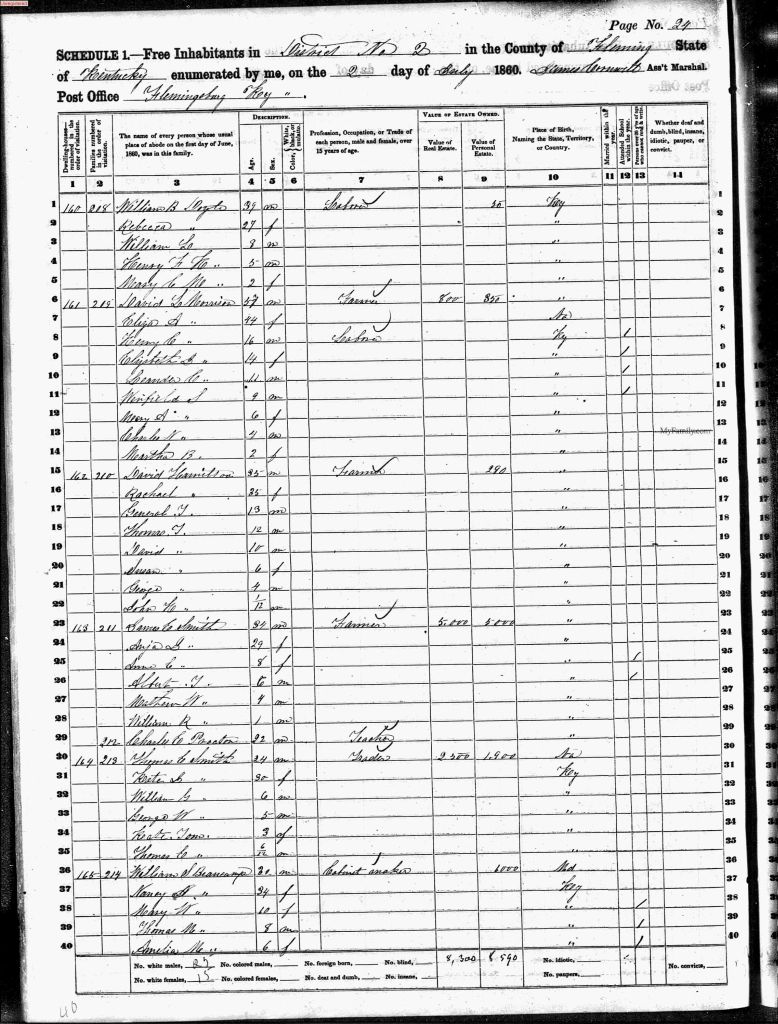 Page No. 24
SCHEDULE 1.—Free Inhabitants in District No 2 in the County of Fleming State
of Kentucky enumerated by me, on the 2 day of July 1860. Ass't Marshal.
Post Office Flemingsburg Key
Dwelling-houses—numbered in the order of visitation. Families numbered in the order of visitation. The name of every person whose usual place of abode on the first day of June, 1860, was in this family. DESCRIPTION. Age. Sex. Color, White, black, or mulatto. Profession, Occupation, or Trade of each person, male and female, over 15 years of age. VALUE OF ESTATE OWNED. Value of Real Estate. Value of Personal Estate. Place of Birth, Naming the State, Territory, or Country. Married within the year. Attended School within the year. Persons over 20 y'rs of age who cannot read & write. Whether deaf and dumb, blind, insane, idiotic, pauper, or convict.
1 2 3 4 5 6 7 8 9 10 11 12 13 14
1 160 208 William B 39 m Labore 50 Key 1
2 Rebecca " 27 f " 2
3 William L 8 m " 3
4 Henry F. H. " 5 m " 4
5 Mary C M " 2 f " 5
6 161 209 David L Morrison 57 m Farmer 800 350 " 6
7 Eliza A " 44 f 7
8 Henry C " 16 m Labore Ky 1 8
9 Elizabeth " 14 f " 1 9
10 Leander C " 11 m " 1 10
11 Winfield S 9 m " 1 11
12 Mary A " 6 f " 12
13 Charles " 4 m " 13
14 Martha B. 2 f " 14
15 162 210 David Hamilton 35 m Farmer 290 " 15
16 Rachael " 35 f " 16
17 General T. 13 m " 17
18 Thomas T. 12 m " 18
19 David " 10 m " 19
20 Susan " 6 f " 20
21 George " 4 m " 21
22 John " 1/12 m " 22
23 163 211 James C Smith 34 m Farmer 5000 5000 " 23
24 29 f " 24
25 Anne C " 8 f " 1 25
26 Albert T. " 6 m " 1 26
27 Mathew W " 4 m " 27
28 William R " 1 m " 28
29 212 Charly C Procton 22 m Teacher " 29
30 164 213 Thomas C Smith 34 m Trader 2500 1900 30
31 Kate " 30 f Key 31
32 William " 6 m " 32
33 George W " 5 m " 33
34 Kate 3 f " 34
35 Thomas C " 6/12 m " 35
36 165 214 William S Beaucamp 30 m Cabinet maker 1000 Md 36
37 Nancy " 34 f Key 37
38 Mary W " 10 f " 1 38
39 Thomas M " 8 m " 1 39
40 Amelia M " 6 f " 1 40
No. white males, No. colored males, No. foreign born, No. blind, 8,300 8590 No. idiotic, No. convicts,
No. white females, 15 No. colored females, No. deaf and dumb, No. insane, No. paupers,
MyFamily.com
40